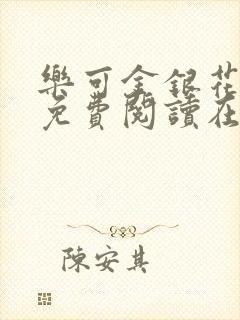 樂可金銀花
免費閱讀在
陳安其